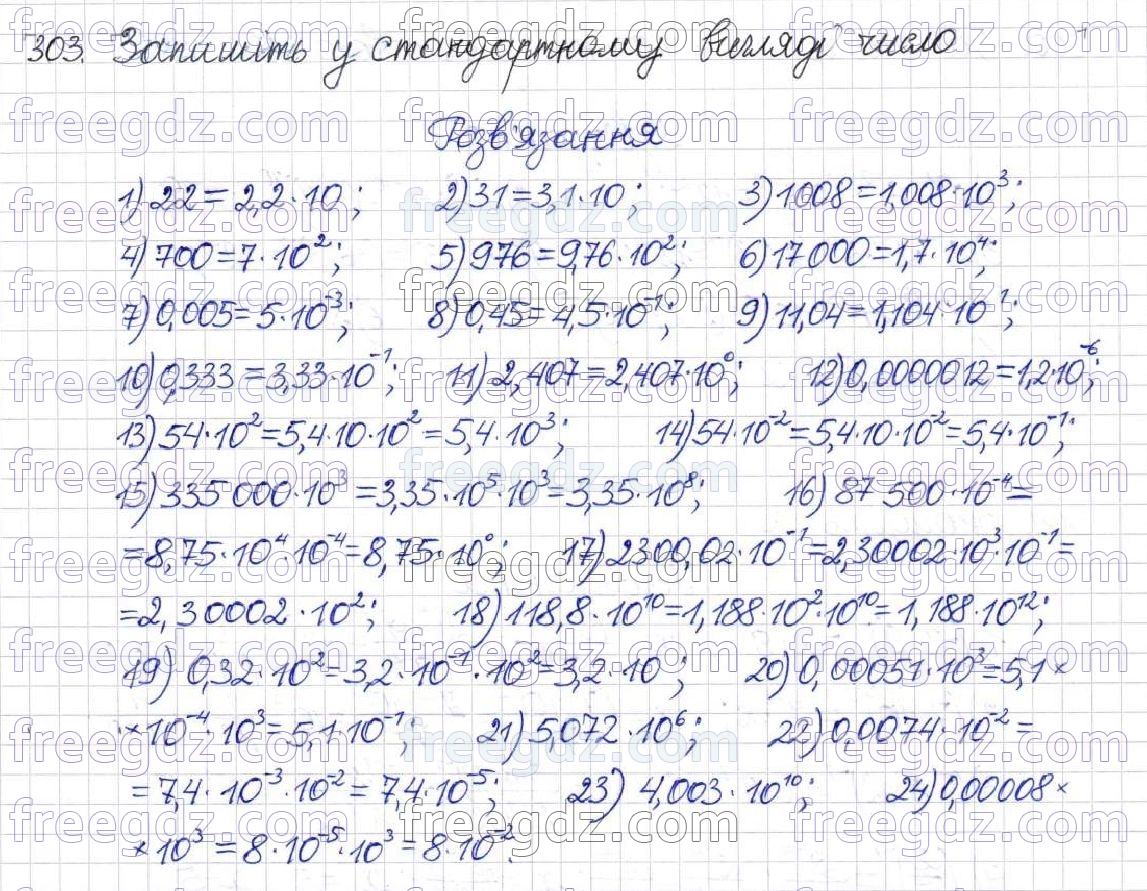 303. Запишіть у стандартному вигляді число
Розв'язання
1) 22 = 2,2 · 10; 2) 31 = 3,1 · 10; 3) 1008 = 1,008 · 10³;
4) 700 = 7 · 10²; 5) 976 = 9,76 · 10²; 6) 17 000 = 1,7 · 10⁴;
7) 0,005 = 5 · 10⁻³; 8) 0,45 = 4,5 · 10⁻¹; 9) 11,04 = 1,104 · 10¹;
10) 0,333 = 3,33 · 10⁻¹; 11) 2,407 = 2,407 · 10⁰; 12) 0,0000012 = 1,2 · 10⁻⁶;
13) 54 · 10² = 5,4 · 10 · 10² = 5,4 · 10³; 14) 54 · 10⁻² = 5,4 · 10 · 10⁻² = 5,4 · 10⁻¹;
15) 335 000 · 10³ = 3,35 · 10⁵ · 10³ = 3,35 · 10⁸; 16) 87 500 · 10⁻⁴ =
= 8,75 · 10⁴ · 10⁻⁴ = 8,75 · 10⁰; 17) 2300,02 · 10⁻¹ = 2,30002 · 10³ · 10⁻¹ =
= 2,30002 · 10²; 18) 118,8 · 10¹⁰ = 1,188 · 10² · 10¹⁰ = 1,188 · 10¹²;
19) 0,32 · 10² = 3,2 · 10⁻¹ · 10² = 3,2 · 10; 20) 0,00051 · 10³ = 5,1 ×
× 10⁻⁴ · 10³ = 5,1 · 10⁻¹; 21) 5,072 · 10⁶; 22) 0,0074 · 10⁻² =
= 7,4 · 10⁻³ · 10⁻² = 7,4 · 10⁻⁵; 23) 4,003 · 10¹⁰; 24) 0,00008 ×
× 10³ = 8 · 10⁻⁵ · 10³ = 8 · 10⁻².